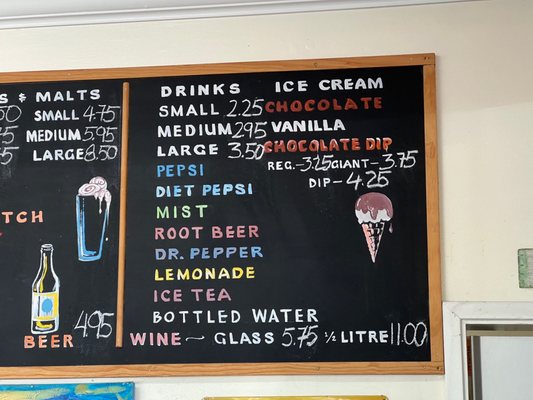 & MALTS
SMALL 4.75
MEDIUM 5.95
LARGE 8.50
BEER 4.95
DRINKS
SMALL 2.25
MEDIUM 2.95
LARGE 3.50
PEPSI
DIET PEPSI
MIST
ROOT BEER
DR. PEPPER
LEMONADE
ICE TEA
BOTTLED WATER
WINE ~ GLASS 5.75 ½ LITRE 11.00
ICE CREAM
CHOCOLATE
VANILLA
CHOCOLATE DIP
REG.-3.25 GIANT-3.75
DIP-4.25